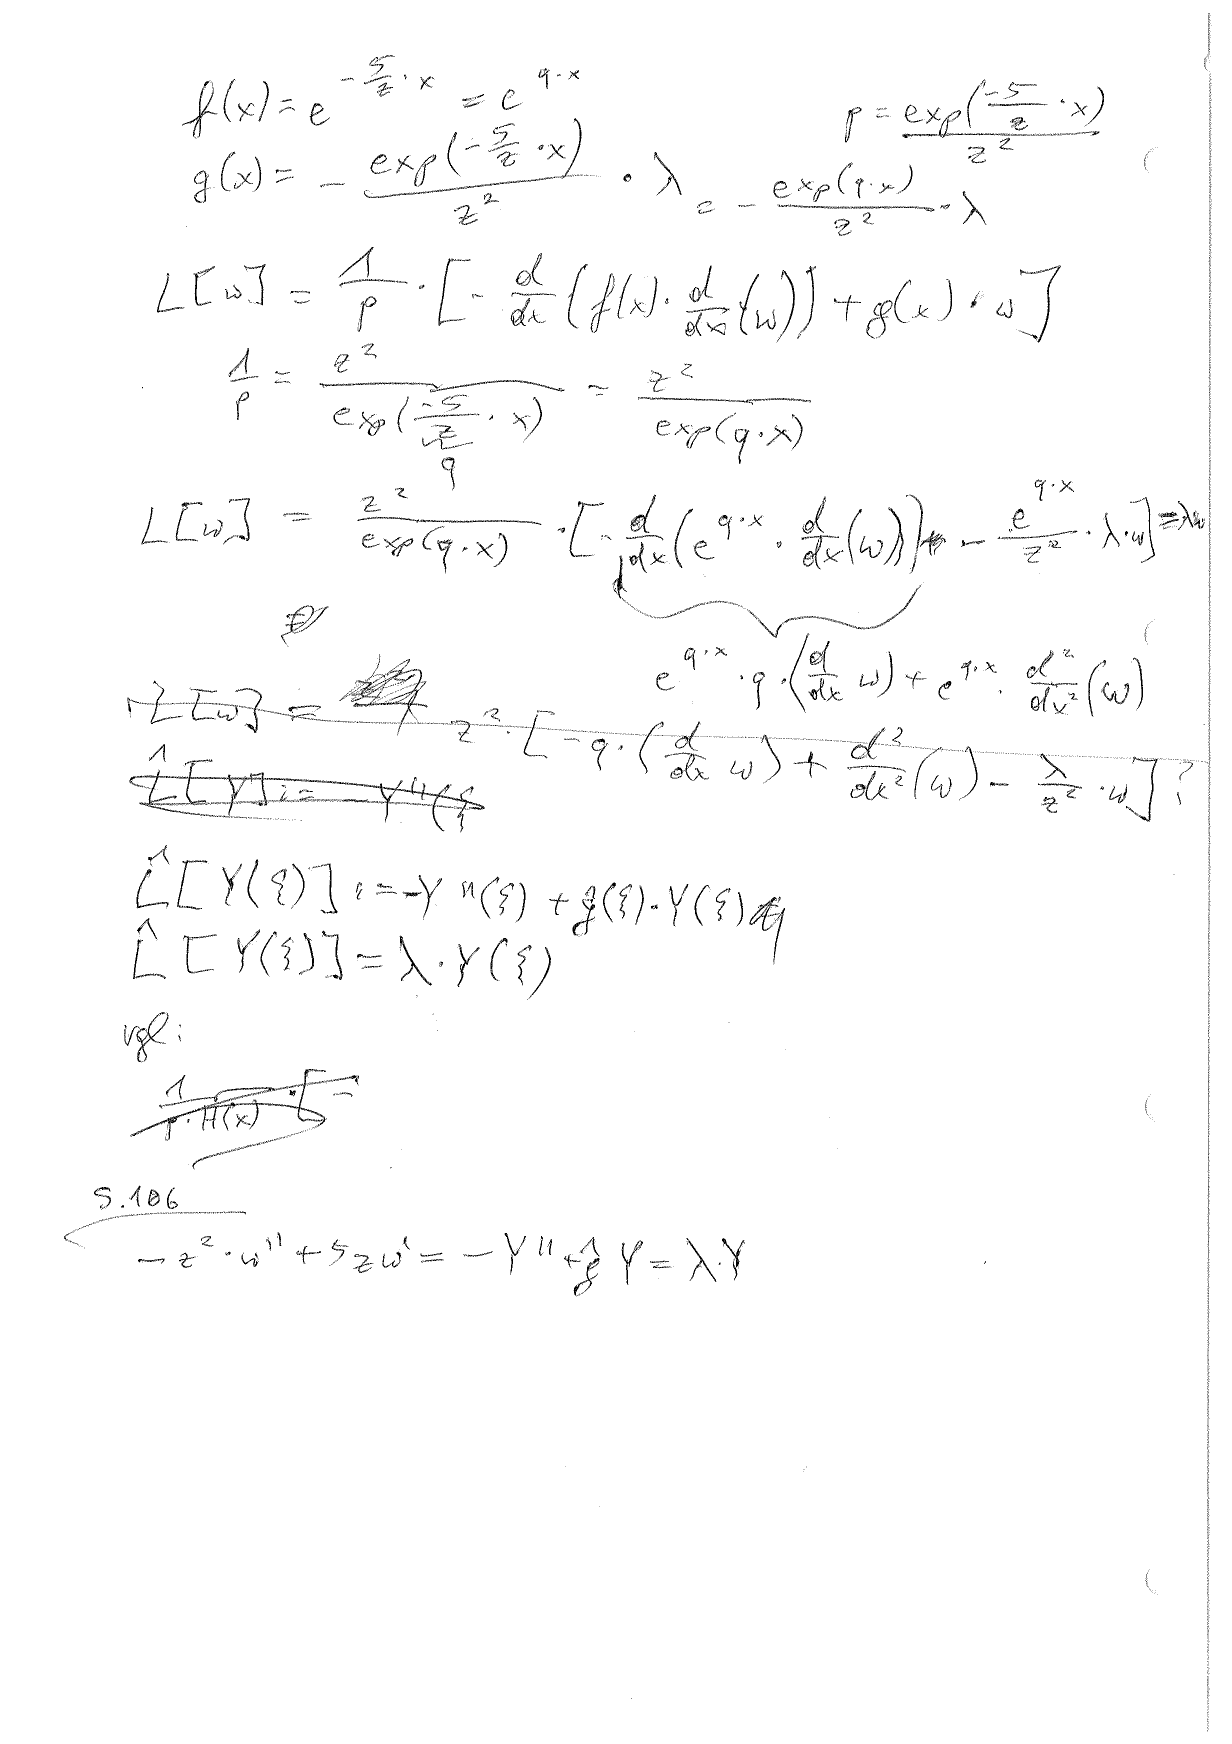 f(x) = e^{-5/z · x} = e^{q·x}
p = exp(-5/z · x) / z²
g(x) = - exp(-5/z · x) / z² · λ = - exp(q·x) / z² · λ
L[w] = 1/p · [- d/dx (f(x) · d/dx (w)) + g(x) · w]
1/p = z² / exp(-5/z · x) = z² / exp(q·x)
q
L[w] = z² / exp(q·x) · [- d/dx (e^{q·x} · d/dx (w)) - e^{q·x} / z² · λ·w] = λw
e^{q·x} · q · (d/dx w) + e^{q·x} · d²/dx² (w)
L[w] = z² · [-q · (d/dx w) + d²/dx² (w) - λ/z² · w] ?
L̂[Y] := -Y''(ξ
L̂[Y(ξ)] := -Y''(ξ) + ĝ(ξ)·Y(ξ)
L̂[Y(ξ)] = λ·Y(ξ)
vgl:
1 / p·H(x) · [-
S.106
-z²·w'' + 5zw' = -Y'' + ĝ Y = λ·Y